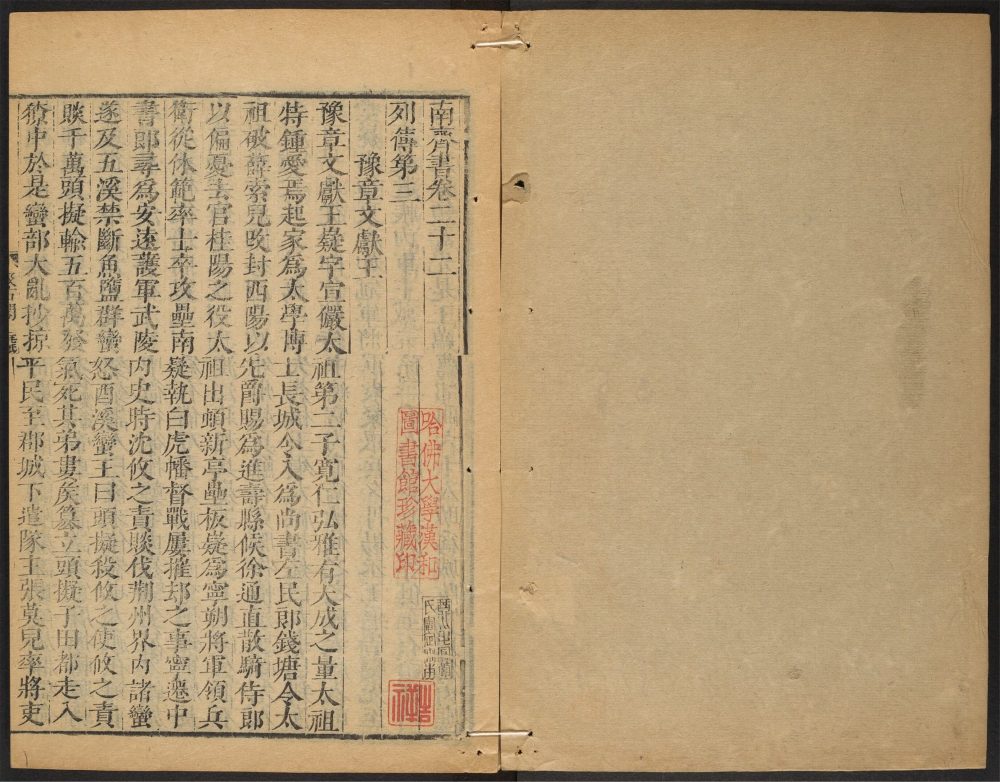 南齊書卷二十二
列傳第三
豫章文獻王
豫章文獻王嶷字宣儼太祖第二子寬仁弘雅有大成之量太祖
特鍾愛焉起家爲太學博士長城令入爲尚書左民郎錢塘令太
祖破薛索兒攺封西陽以先爵賜爲進壽縣侯徐通直散騎侍郎
以偏憂去官桂陽之役太祖出頓新亭壘板嶷爲寧朔將軍領兵
衛從休範率士卒攻壘南嶷執白虎幡督戰屢摧却之事寧遷中
書郎尋爲安遠護軍武陵内史時沈攸之責賧伐荆州界内諸蠻
遂及五溪禁斷魚鹽群蠻怒酉溪蠻王田頭擬殺攸之使攸之責
賧千萬頭擬輸五百萬發氣死其弟婁矦簒立頭擬子田都走入
獠中於是蠻部大亂抄掠平民至郡城下遣隊主張莫兒率將吏
哈佛大學漢和
圖書館珍藏印